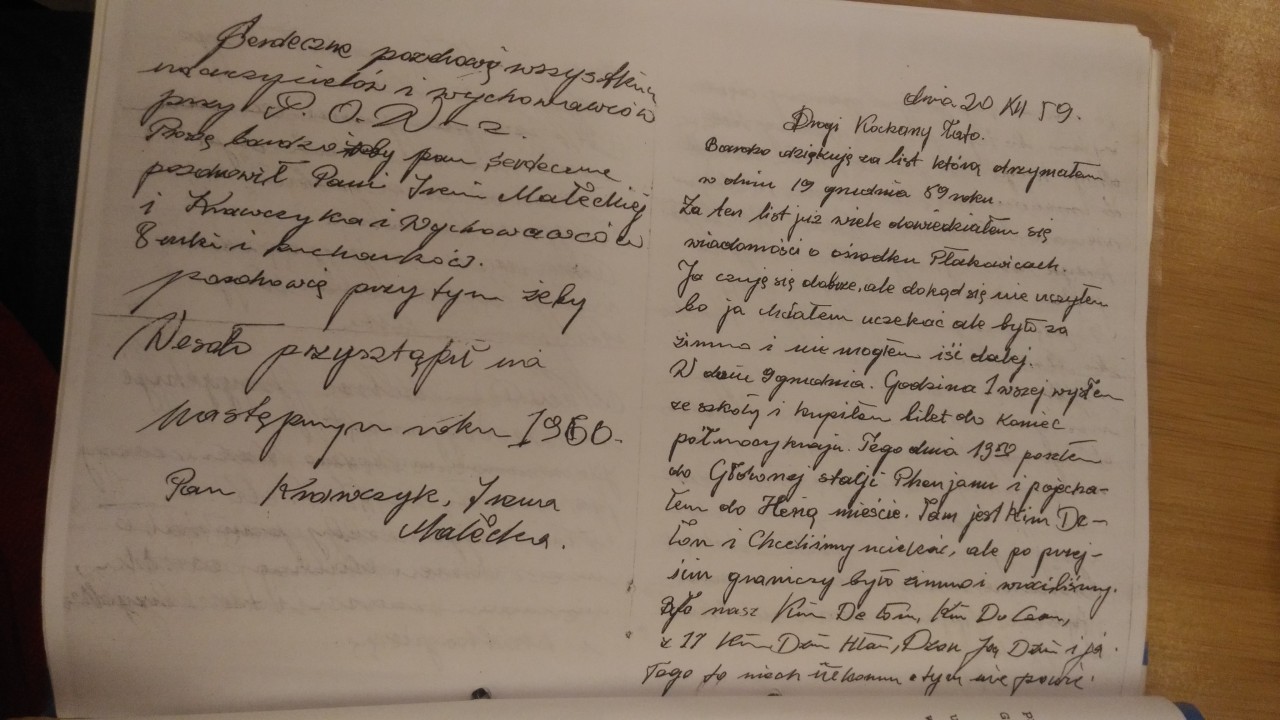 Serdeczne pozdrowię wszystkim
nauczycielów i wychowawców
przy P. O. W-2.
Proszę bardzo żeby pan serdeczne
pozdrowił Pani Irenie Małeckiej
i Krawczyka i Wychowawców
i
pozdrowię przy tym żeby
Wesoło przysztąpił na
następnym roku 1960.
Pan Krawczyk, Irena
Małecka.
dnia 20 XII 59.
Drogi Kochany Tato.
Bardzo dziękuję za list którą otrzymałem
w dniu 19 grudnia 59 roku
Za ten list już wiele dowiedziałem się
wiadomości o ośrodku Płakowicach.
Ja czuję się dobrze, ale dokąd się nie uczyłem
bo ja chciałem uciekać ale było za
zimno i nie mogłem iść dalej.
W dniu 9 grudnia. Godzina 1 wszej wyszłem
ze szkoły i kupiłem bilet do koniec
północy kraju. Tego dnia 19 poszłem
do Głównej stalji Phenjanu i pojecha-
łem do mieście. Tam jest Kim De-
Ton i Chcieliśmy uciekać, ale po przej-
ściu graniczy było zimno i wróciliśmy.
nasz Kim De Ton, Kim Do
z 11 Kim Dzin, Dzon Jon Dzin i ja.
Tego to niech nikomu o tym nie powie.